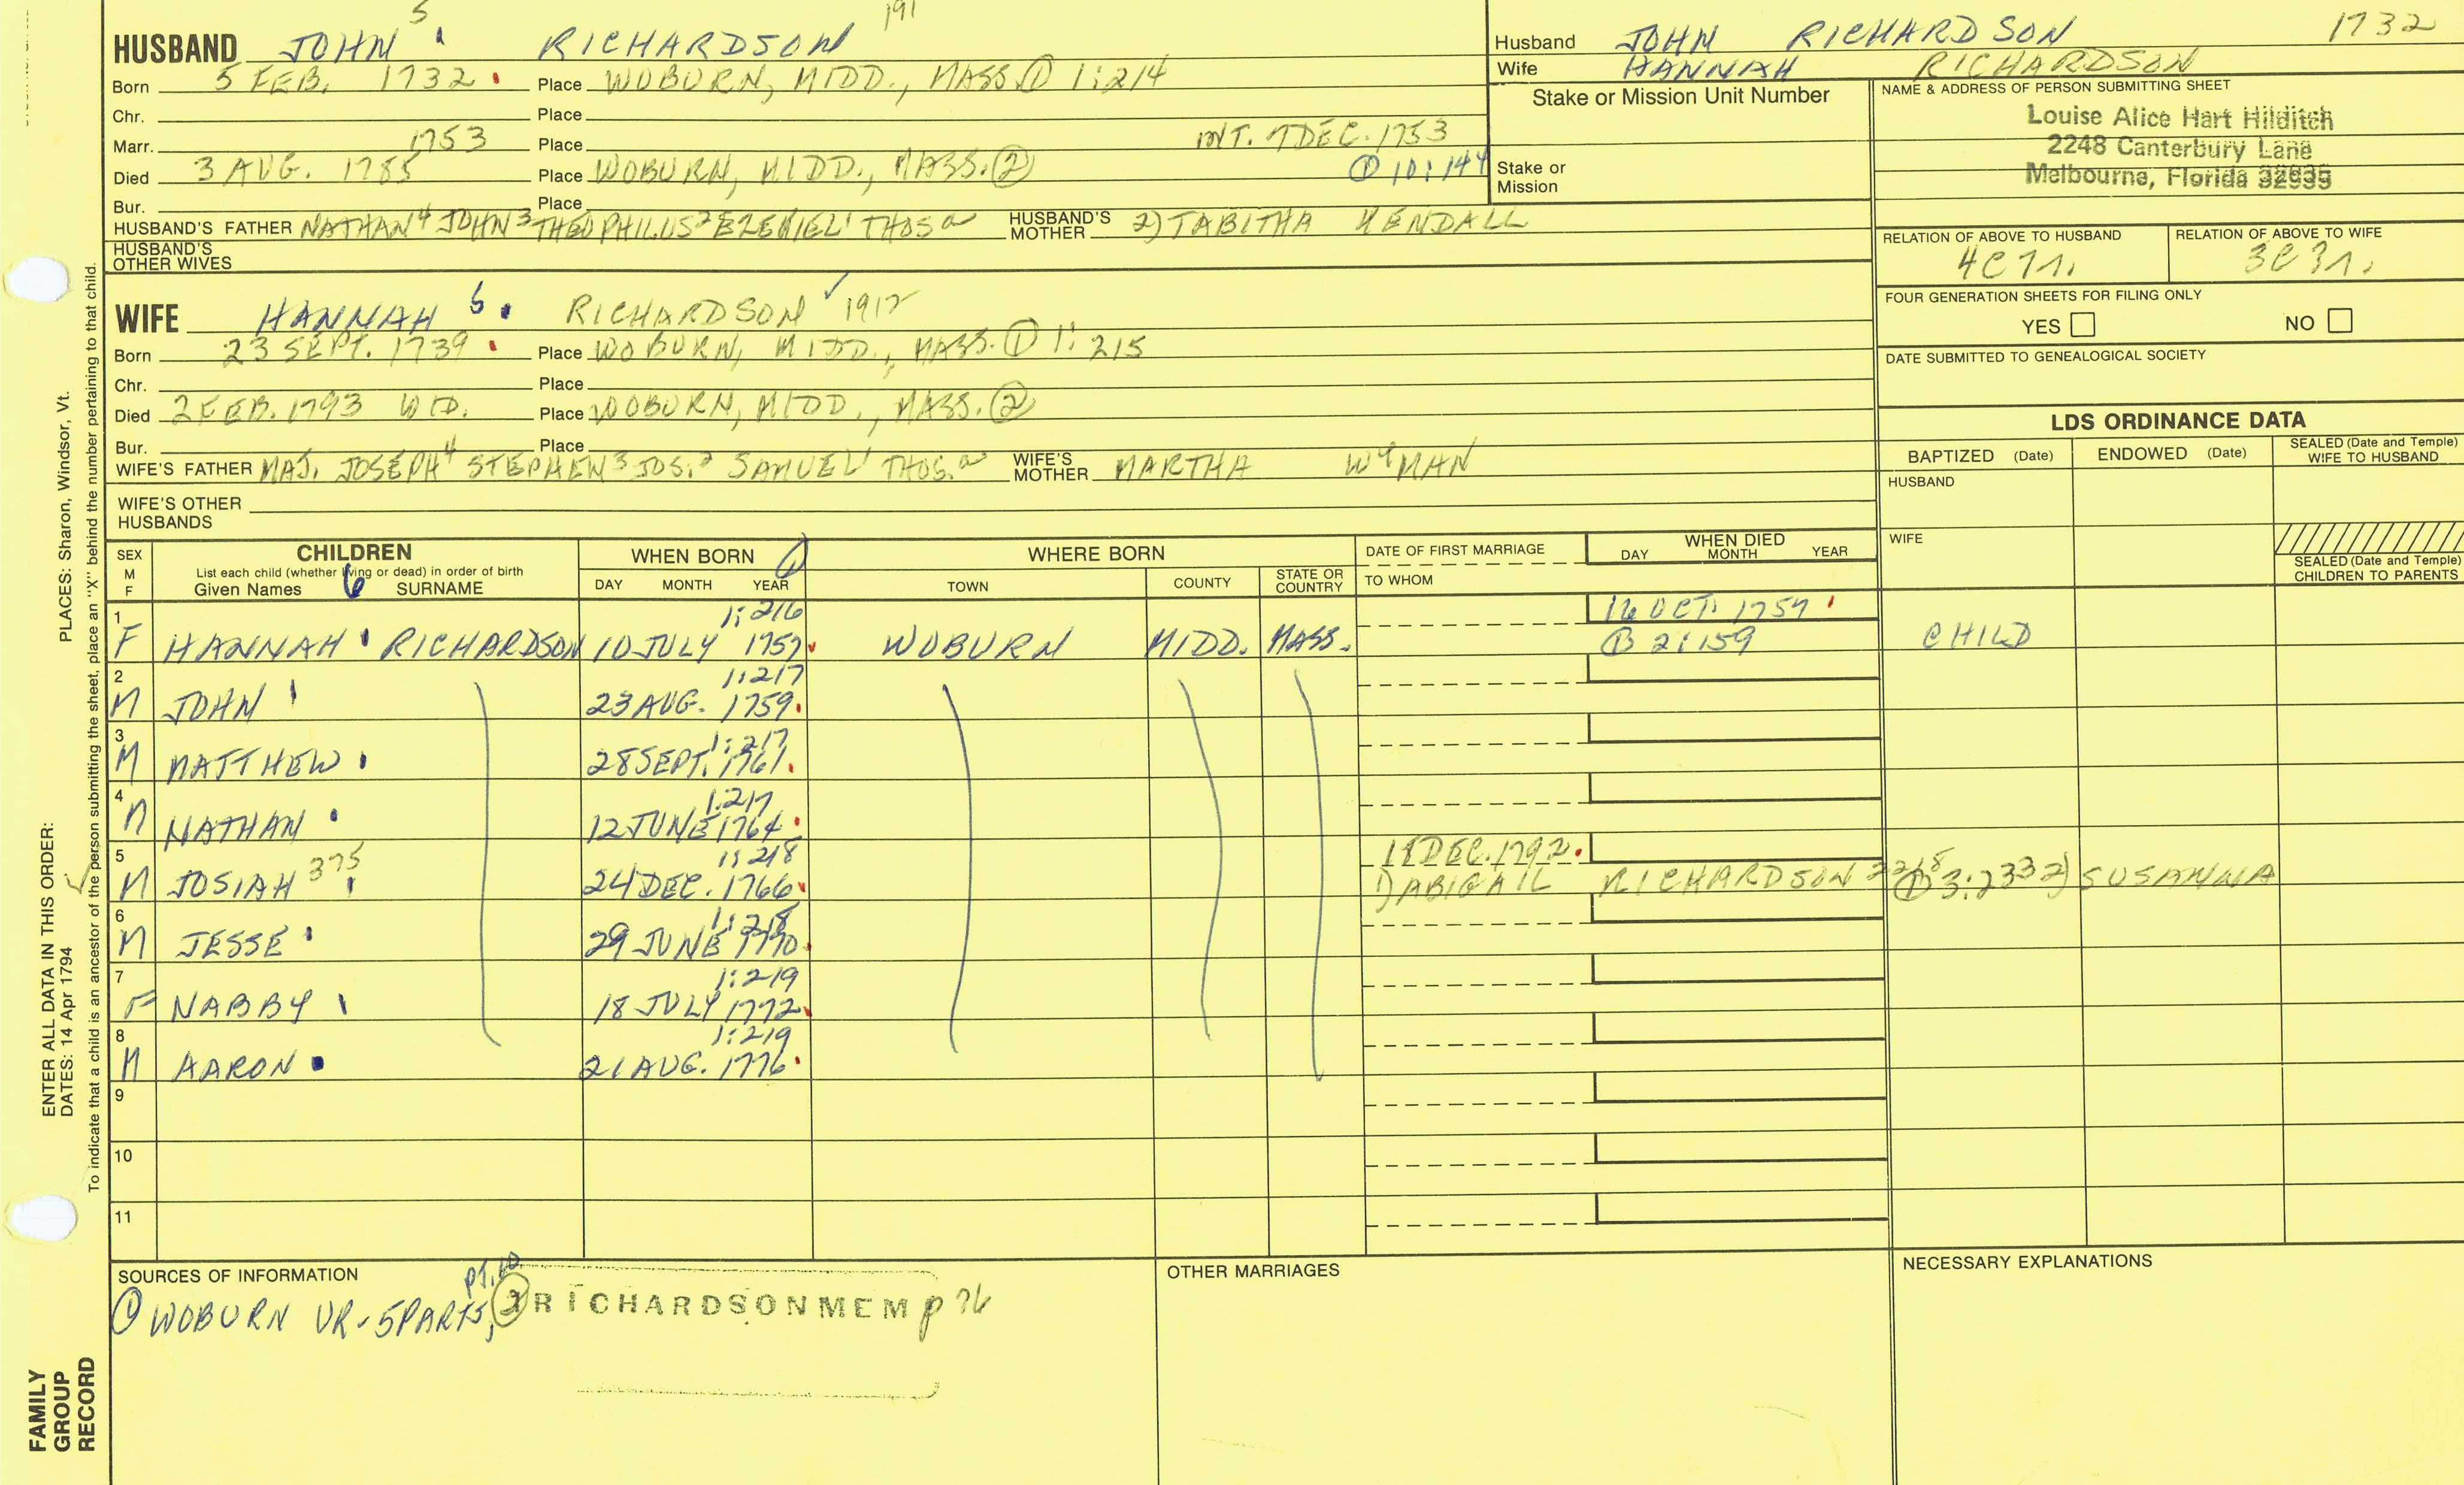 5 191
HUSBAND JOHN RICHARDSON
Born 5 FEB. 1732 Place WOBURN, MIDD., MASS. ① 1:214
Chr. Place
Marr. 1753 Place INT. 7 DEC. 1753
Died 3 AUG. 1785 Place WOBURN, MIDD., MASS. ② ① 10:144
Bur. Place
HUSBAND'S FATHER NATHAN⁴ JOHN³ THEOPHILUS² EZEKIEL¹ THOS ᵃ HUSBAND'S MOTHER 2) TABITHA KENDALL
HUSBAND'S OTHER WIVES
Husband JOHN RICHARDSON 1732
Wife HANNAH RICHARDSON
Stake or Mission Unit Number
Stake or Mission
NAME & ADDRESS OF PERSON SUBMITTING SHEET
Louise Alice Hart Hilditch
2248 Canterbury Lane
Melbourne, Florida 32935
RELATION OF ABOVE TO HUSBAND RELATION OF ABOVE TO WIFE
4C 7r. 3C 3r.
FOUR GENERATION SHEETS FOR FILING ONLY
YES NO
DATE SUBMITTED TO GENEALOGICAL SOCIETY
WIFE HANNAH 6 RICHARDSON ✓ 1912
Born 23 SEPT. 1739 Place WOBURN, MIDD., MASS. ① 1:215
Chr. Place
Died 2 FEB. 1793 WID. Place WOBURN, MIDD., MASS. ②
Bur. Place
WIFE'S FATHER MAJ. JOSEPH⁴ STEPHEN³ JOS.² SAMUEL¹ THOS. ᵃ WIFE'S MOTHER MARTHA WYMAN
WIFE'S OTHER HUSBANDS
LDS ORDINANCE DATA
BAPTIZED (Date) ENDOWED (Date) SEALED (Date and Temple) WIFE TO HUSBAND
HUSBAND
WIFE
SEALED (Date and Temple) CHILDREN TO PARENTS
SEX M F
CHILDREN
List each child (whether living or dead) in order of birth
Given Names 6 SURNAME
WHEN BORN ①
DAY MONTH YEAR
WHERE BORN
TOWN COUNTY STATE OR COUNTRY
DATE OF FIRST MARRIAGE
TO WHOM
WHEN DIED
DAY MONTH YEAR
1 1:216 16 OCT. 1757
F HANNAH RICHARDSON 10 JULY 1757 WOBURN MIDD. MASS. ① 2:159 CHILD
2 1:217
M JOHN 23 AUG. 1759
3 1:217
M MATTHEW 28 SEPT. 1761
4 1:217
M NATHAN 12 JUNE 1764
5 1:218 18 DEC. 1792
M JOSIAH 375 24 DEC. 1766 1) ABIGAIL RICHARDSON ① 3:233 2) SUSANNA
6 1:218
M JESSE 29 JUNE 1770
7 1:219
F NABBY 18 JULY 1772
8 1:219
M AARON 21 AUG. 1776
9
10
11
SOURCES OF INFORMATION
PT. 10
① WOBURN VR-5 PARTS, ② RICHARDSON MEM p 76
OTHER MARRIAGES
NECESSARY EXPLANATIONS
ENTER ALL DATA IN THIS ORDER:
DATES: 14 Apr 1794 PLACES: Sharon, Windsor, Vt.
To indicate that a child is an ancestor of the person submitting the sheet, place an "X" behind the number pertaining to that child.
FAMILY
GROUP
RECORD